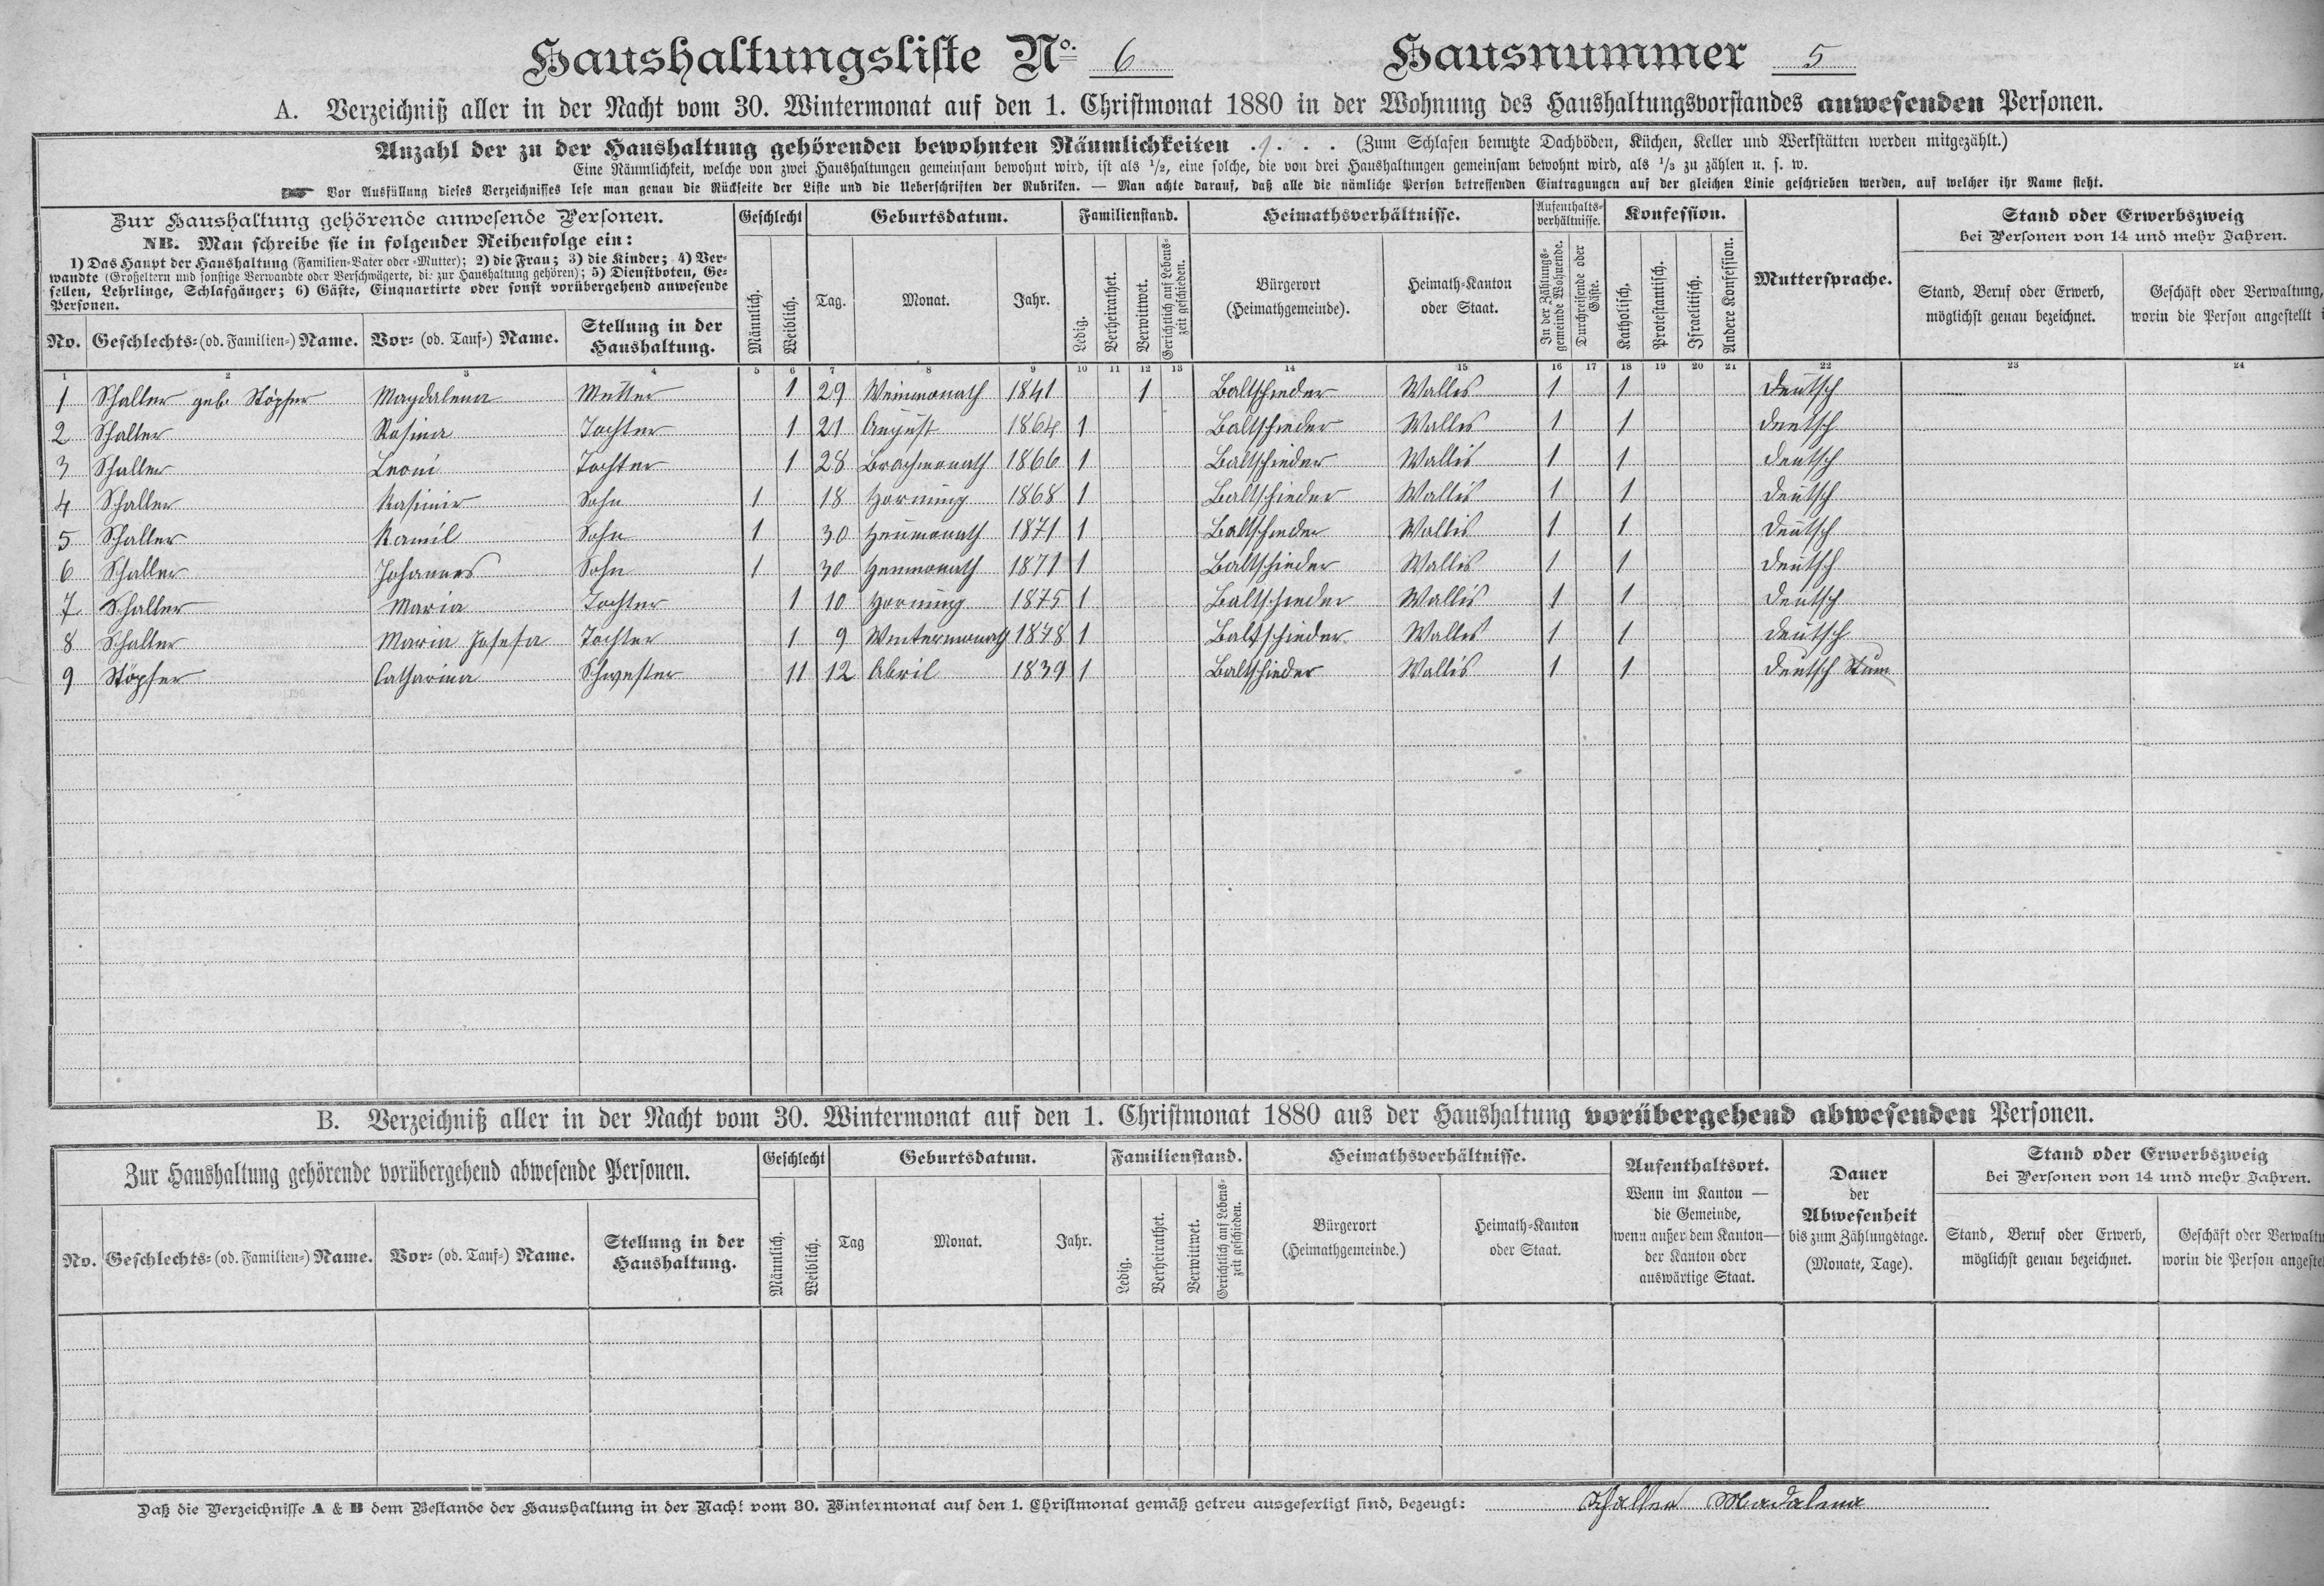 Haushaltungsliste No. 6 Hausnummer 5
A. Verzeichniß aller in der Nacht vom 30. Wintermonat auf den 1. Christmonat 1880 in der Wohnung des Haushaltungsvorstandes anwesenden Personen.
Anzahl der zu der Haushaltung gehörenden bewohnten Räumlichkeiten . . . . (Zum Schlafen benutzte Dachböden, Küchen, Keller und Werkstätten werden mitgezählt.)
Eine Räumlichkeit, welche von zwei Haushaltungen gemeinsam bewohnt wird, ist als 1/2, eine solche, die von drei Haushaltungen gemeinsam bewohnt wird, als 1/3 zu zählen u. s. w.
Vor Ausfüllung dieses Verzeichnisses lese man genau die Rückseite der Liste und die Ueberschriften der Rubriken. — Man achte darauf, daß alle die nämliche Person betreffenden Eintragungen auf der gleichen Linie geschrieben werden, auf welcher ihr Name steht.
Zur Haushaltung gehörende anwesende Personen.
NB. Man schreibe sie in folgender Reihenfolge ein:
1) Das Haupt der Haushaltung (Familien-Vater oder -Mutter); 2) die Frau; 3) die Kinder; 4) Ver-
wandte (Großeltern und sonstige Verwandte oder Verschwägerte, die zur Haushaltung gehören); 5) Dienstboten, Ge-
sellen, Lehrlinge, Schlafgänger; 6) Gäste, Einquartirte oder sonst vorübergehend anwesende
Personen.
No. Geschlechts- (od. Familien-) Name. Vor- (od. Tauf-) Name. Stellung in der
Haushaltung.
Geschlecht
Männlich. Weiblich.
Geburtsdatum.
Tag. Monat. Jahr.
Familienstand.
Ledig. Verheirathet. Verwittwet. Gerichtlich auf Lebens-
zeit geschieden.
Heimathsverhältnisse.
Bürgerort
(Heimathgemeinde).
Heimath-Kanton
oder Staat.
Aufenthalts-
verhältnisse.
In der Zählungs-
gemeinde Wohnende.
Durchreisende oder
Gäste.
Konfession.
Katholisch. Protestantisch. Israelitisch. Andere Konfession.
Muttersprache.
Stand oder Erwerbszweig
bei Personen von 14 und mehr Jahren.
Stand, Beruf oder Erwerb,
möglichst genau bezeichnet.
Geschäft oder Verwaltung,
worin die Person angestellt
1 2 3 4 5 6 7 8 9 10 11 12 13 14 15 16 17 18 19 20 21 22 23 24
1 Schaller geb. Stöpfer Magdalena Mutter 1 29 Weinmonath 1841 1 Baltschieder Wallis 1 1 deutsch
2 Schaller Rosina Tochter 1 21 August 1864 1 Baltschieder Wallis 1 1 deutsch
3 Schaller Leoni Tochter 1 28 Brachmonath 1866 1 Baltschieder Wallis 1 1 deutsch
4 Schaller Kasimir Sohn 1 18 Hornung 1868 1 Baltschieder Wallis 1 1 deutsch
5 Schaller Kamil Sohn 1 30 Heumonath 1871 1 Baltschieder Wallis 1 1 deutsch
6 Schaller Johannes Sohn 1 30 Heumonath 1871 1 Baltschieder Wallis 1 1 deutsch
7 Schaller Maria Tochter 1 10 Hornung 1875 1 Baltschieder Wallis 1 1 deutsch
8 Schaller Maria Josefa Tochter 1 9 Wintermonath 1878 1 Baltschieder Wallis 1 1 deutsch
9 Stöpfer Catharina Schwester 11 12 Abril 1839 1 Baltschieder Wallis 1 1 deutsch Stum
B. Verzeichniß aller in der Nacht vom 30. Wintermonat auf den 1. Christmonat 1880 aus der Haushaltung vorübergehend abwesenden Personen.
Zur Haushaltung gehörende vorübergehend abwesende Personen.
No. Geschlechts- (od. Familien-) Name. Vor- (od. Tauf-) Name. Stellung in der
Haushaltung.
Geschlecht
Männlich. Weiblich.
Geburtsdatum.
Tag Monat. Jahr.
Familienstand.
Ledig. Verheirathet. Verwittwet. Gerichtlich auf Lebens-
zeit geschieden.
Heimathsverhältnisse.
Bürgerort
(Heimathgemeinde.)
Heimath-Kanton
oder Staat.
Aufenthaltsort.
Wenn im Kanton —
die Gemeinde,
wenn außer dem Kanton—
der Kanton oder
auswärtige Staat.
Dauer
der
Abwesenheit
bis zum Zählungstage.
(Monate, Tage).
Stand oder Erwerbszweig
bei Personen von 14 und mehr Jahren.
Stand, Beruf oder Erwerb,
möglichst genau bezeichnet.
Geschäft oder Verwaltu
worin die Person angeste
Daß die Verzeichnisse A & B dem Bestande der Haushaltung in der Nacht vom 30. Wintermonat auf den 1. Christmonat gemäß getreu ausgefertigt sind, bezeugt: Schaller Madalena